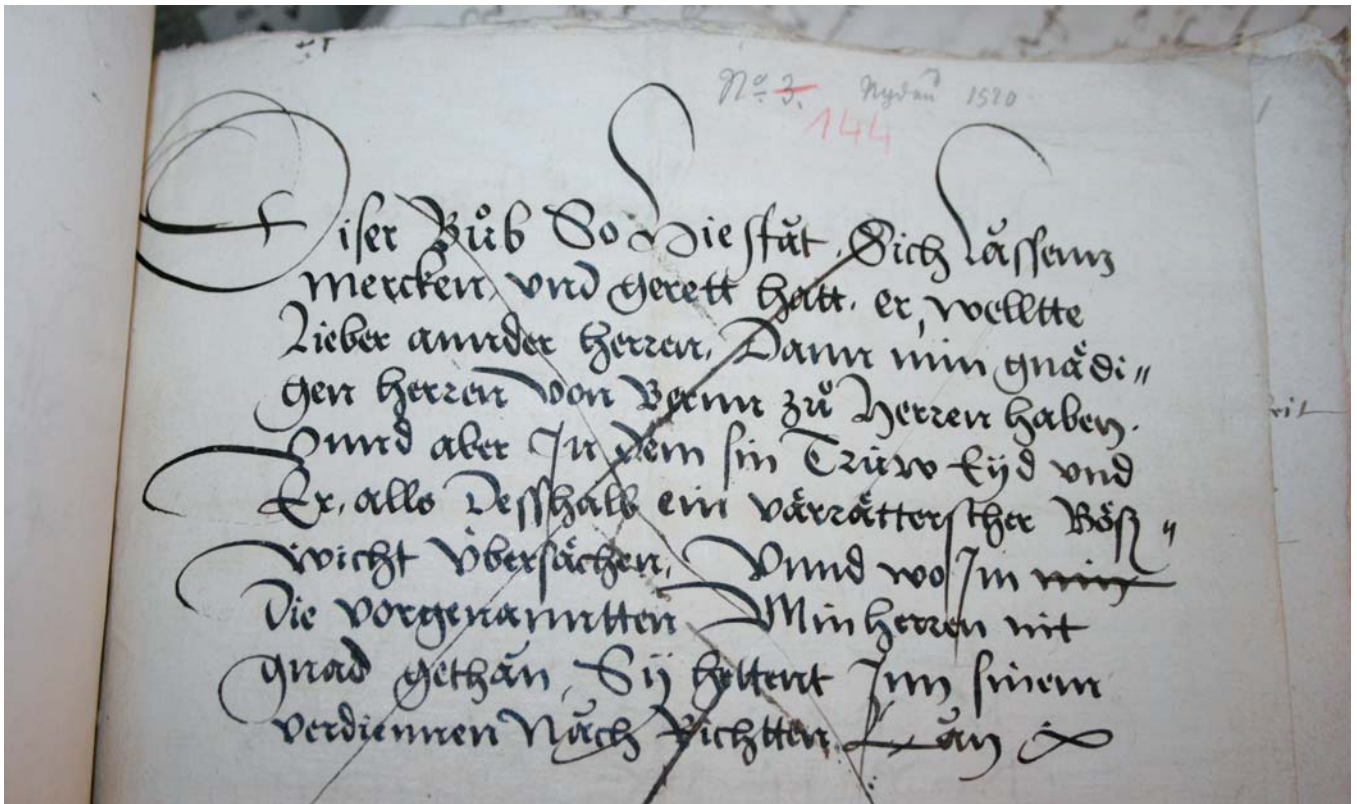 No. 3. Nydau 1520
144
Diser Bůb So Hie ståt, Sich Låssenn
Mercken, und gerett hatt, er, welltte
Lieber annder herren, Dann min gnådi〃
gen herren von Bernn zů Herren haben.
Unnd aber In dem sin Trüw Eyd und
Er, alls Desshalb ein vårråtterscher Böß〃
wicht Übersåchen, Unnd wo Im min
Die vorgenanntten Min herren nit
gnad gethån, Sy hettent Inn sinem
verdiennen Nåch Richtten Lån